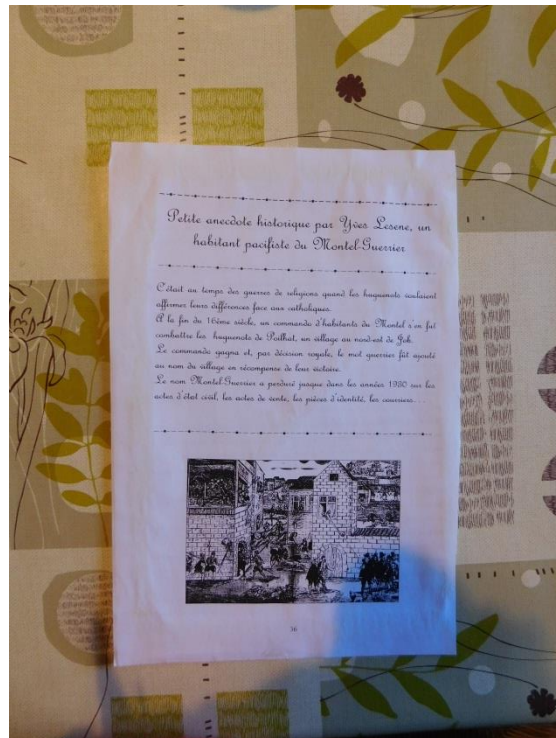 Petite anecdote historique par Yves Lesene, un
habitant pacifiste du Montel-Guerrier
C'était au temps des guerres de religions quand les huguenots voulaient
affirmer leurs différences face aux catholiques.
A la fin du 16ème siècle, un commando d'habitants du Montel s'en fut
combattre les huguenots de Poilhat, un village au nord-est de Job.
Le commando gagna et, par décision royale, le mot guerrier fût ajouté
au nom du village en récompense de leur victoire.
Le nom Montel-Guerrier a perduré jusque dans les années 1930 sur les
actes d'état civil, les actes de vente, les pièces d'identité, les courriers...